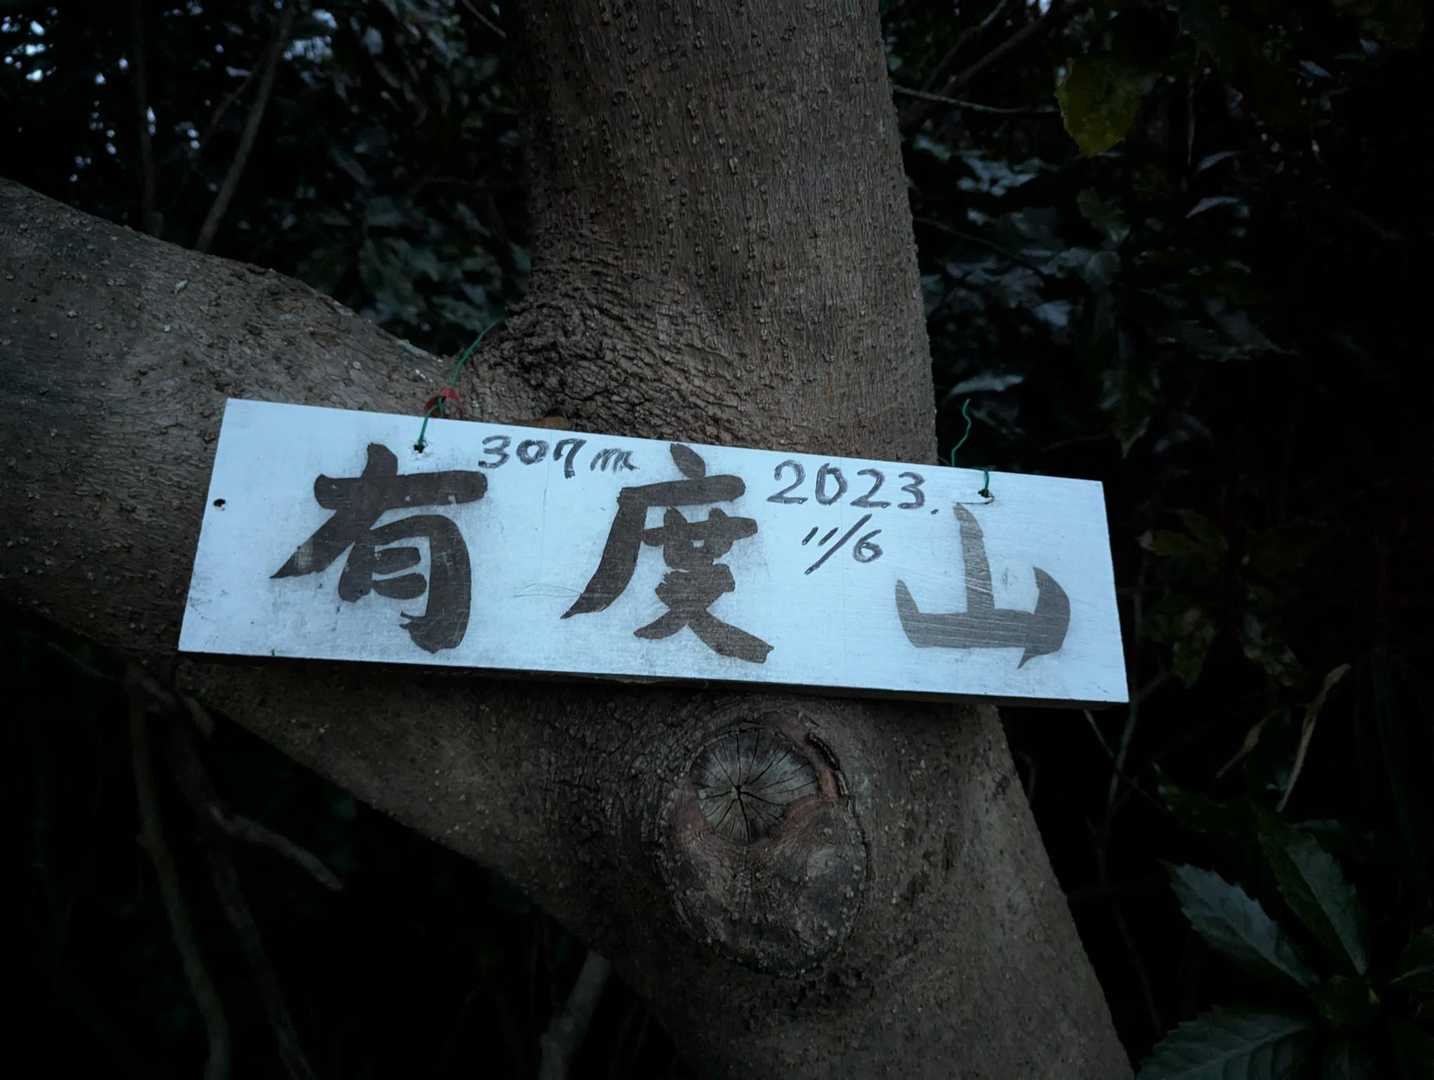 307m 2023.
11/6
有度山